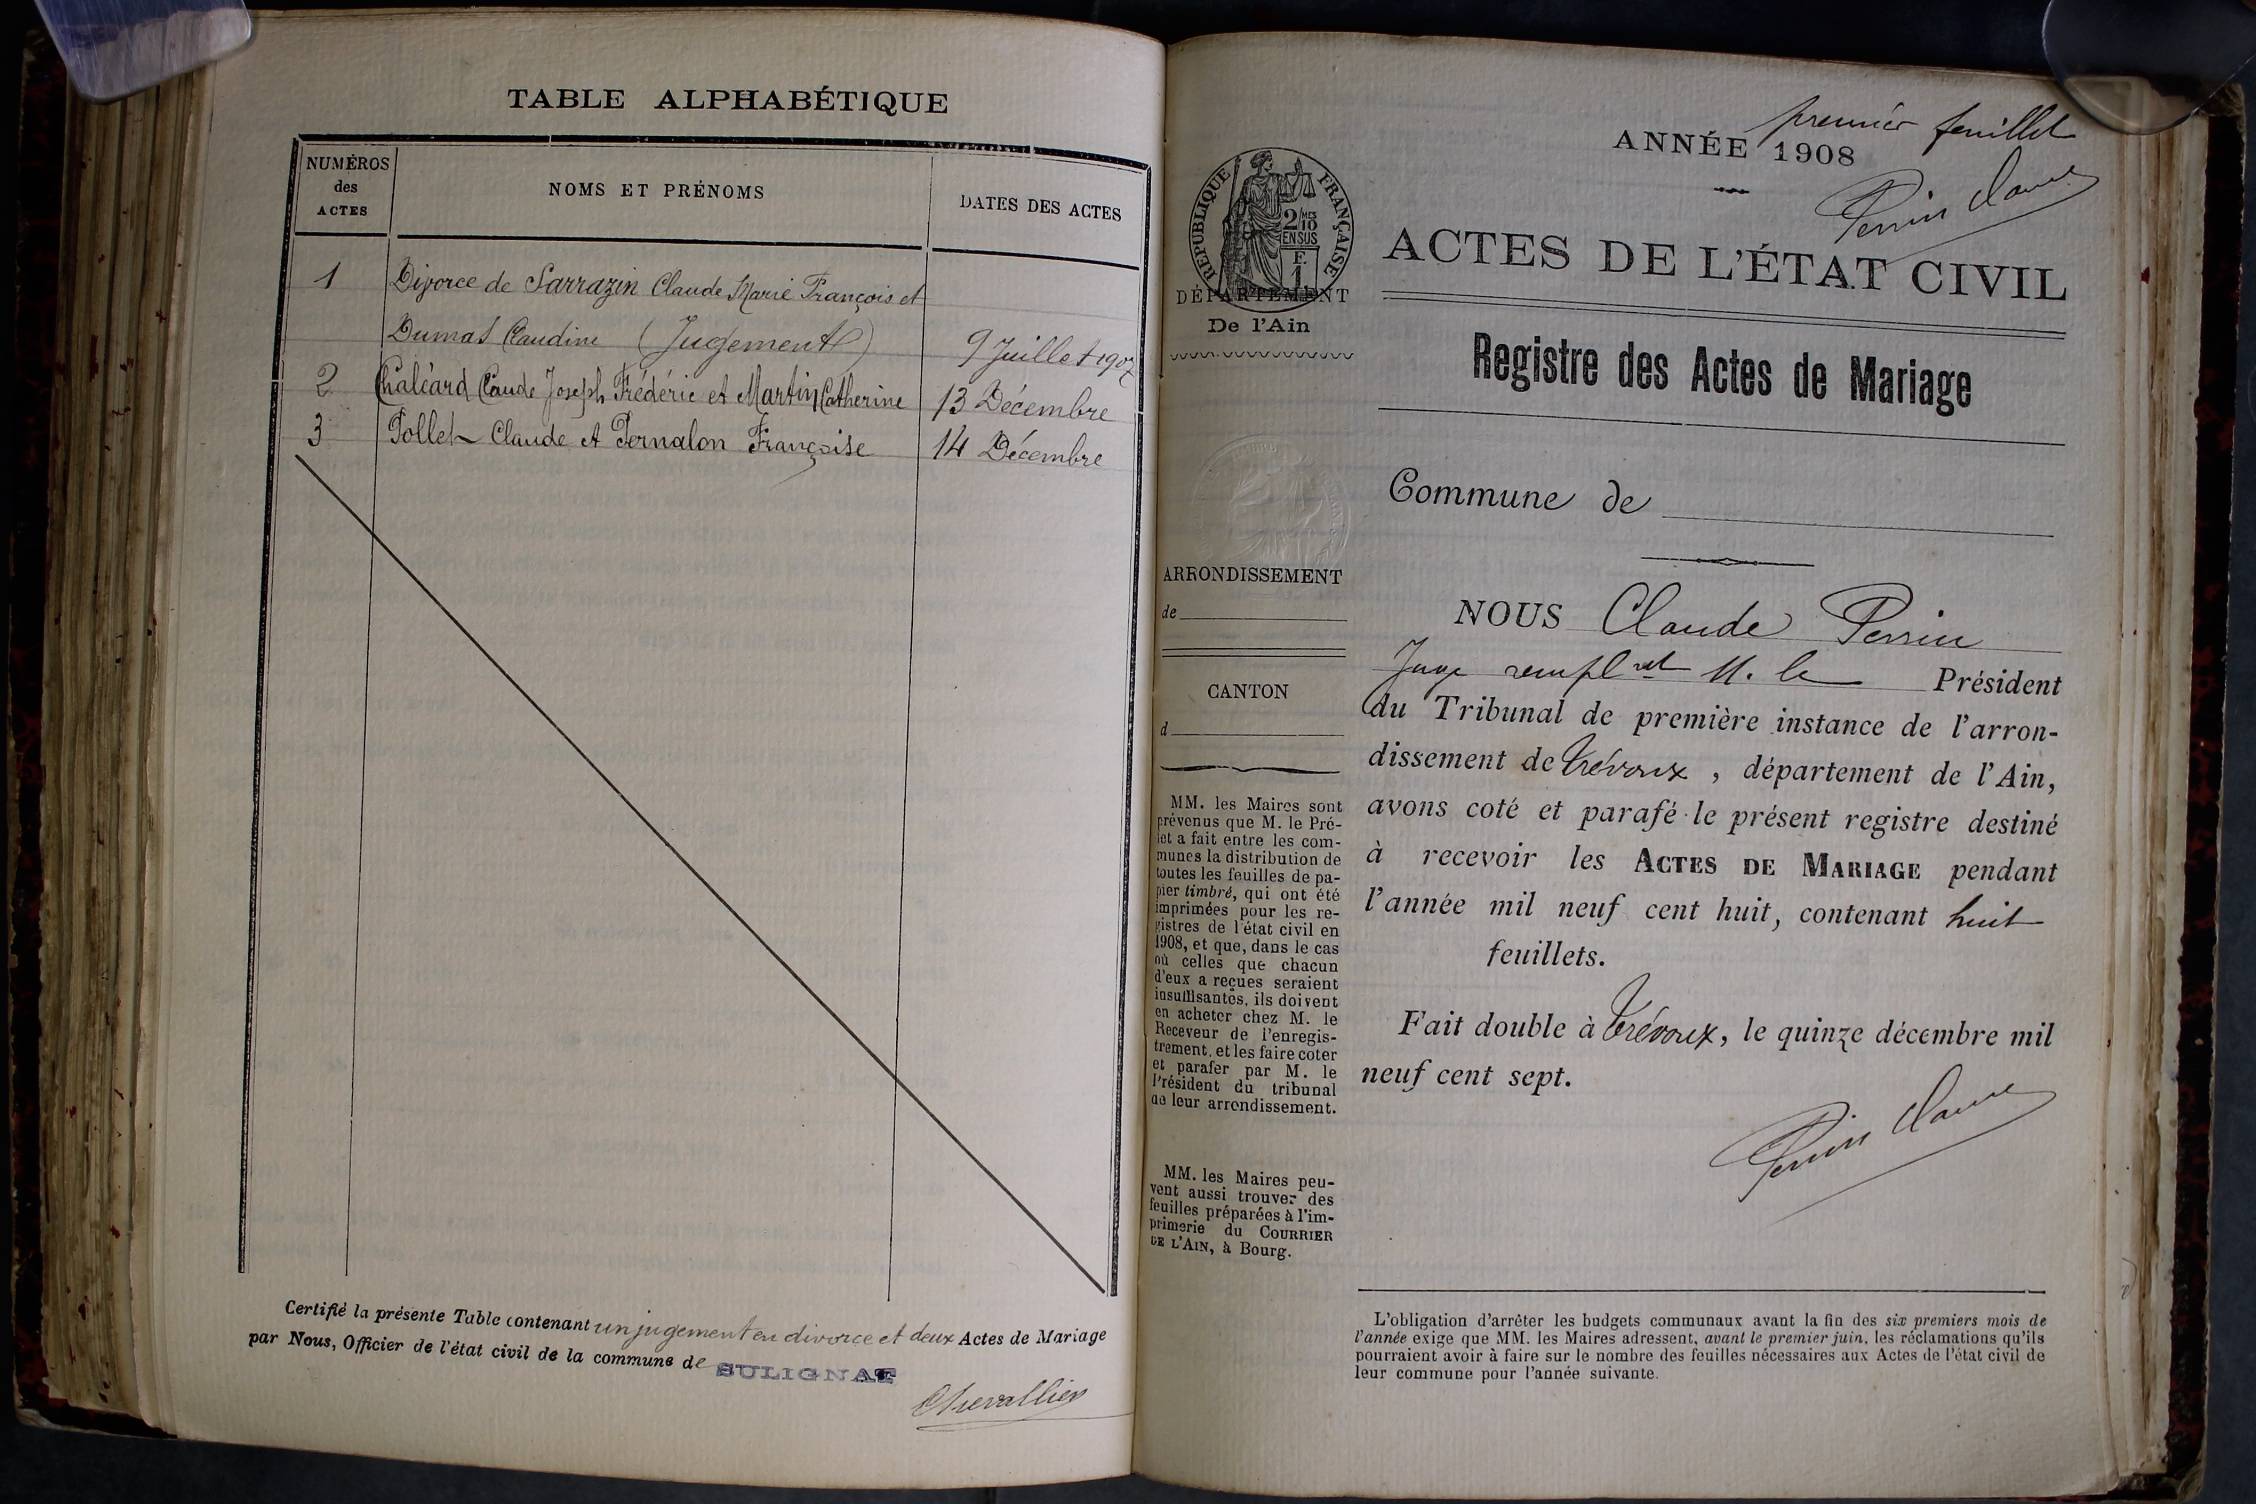 TABLE ALPHABÉTIQUE
NUMÉROS
des
ACTES
NOMS ET PRÉNOMS
DATES DES ACTES
1 Divorce de Sarrazin Claude Marie François et
Dumas Claudine (Jugement) 9 Juillet 1907
2 Chaléard Claude Joseph Frédéric et Martin Catherine 13 Décembre
3 Pollet Claude et Pernalon Françoise 14 Décembre
Certifié la présente Table contenant un jugement en divorce et deux Actes de Mariage
par Nous, Officier de l'état civil de la commune de SULIGNAT
Chevallier
premier feuillet
ANNÉE 1908
Perrin Claude
RÉPUBLIQUE FRANÇAISE
2/10 MES
EN SUS
F.
1
DÉPARTEMENT
De l'Ain
ACTES DE L'ÉTAT CIVIL
Registre des Actes de Mariage
Commune de
ARRONDISSEMENT
de
CANTON
d
MM. les Maires sont
prévenus que M. le Pré-
fet a fait entre les com-
munes la distribution de
toutes les feuilles de pa-
pier timbré, qui ont été
imprimées pour les re-
gistres de l'état civil en
1908, et que, dans le cas
où celles que chacun
d'eux a reçues seraient
insuffisantes, ils doivent
en acheter chez M. le
Receveur de l'enregis-
trement, et les faire coter
et parafer par M. le
Président du tribunal
de leur arrondissement.
MM. les Maires peu-
vent aussi trouver des
feuilles préparées à l'im-
primerie du COURRIER
DE L'AIN, à Bourg.
NOUS Claude Perrin
Juge rempl.nt M. le Président
du Tribunal de première instance de l'arron-
dissement de Trévoux, département de l'Ain,
avons coté et parafé le présent registre destiné
à recevoir les ACTES DE MARIAGE pendant
l'année mil neuf cent huit, contenant huit
feuillets.
Fait double à Trévoux, le quinze décembre mil
neuf cent sept.
Perrin Claude
L'obligation d'arrêter les budgets communaux avant la fin des six premiers mois de
l'année exige que MM. les Maires adressent, avant le premier juin, les réclamations qu'ils
pourraient avoir à faire sur le nombre des feuilles nécessaires aux Actes de l'état civil de
leur commune pour l'année suivante.